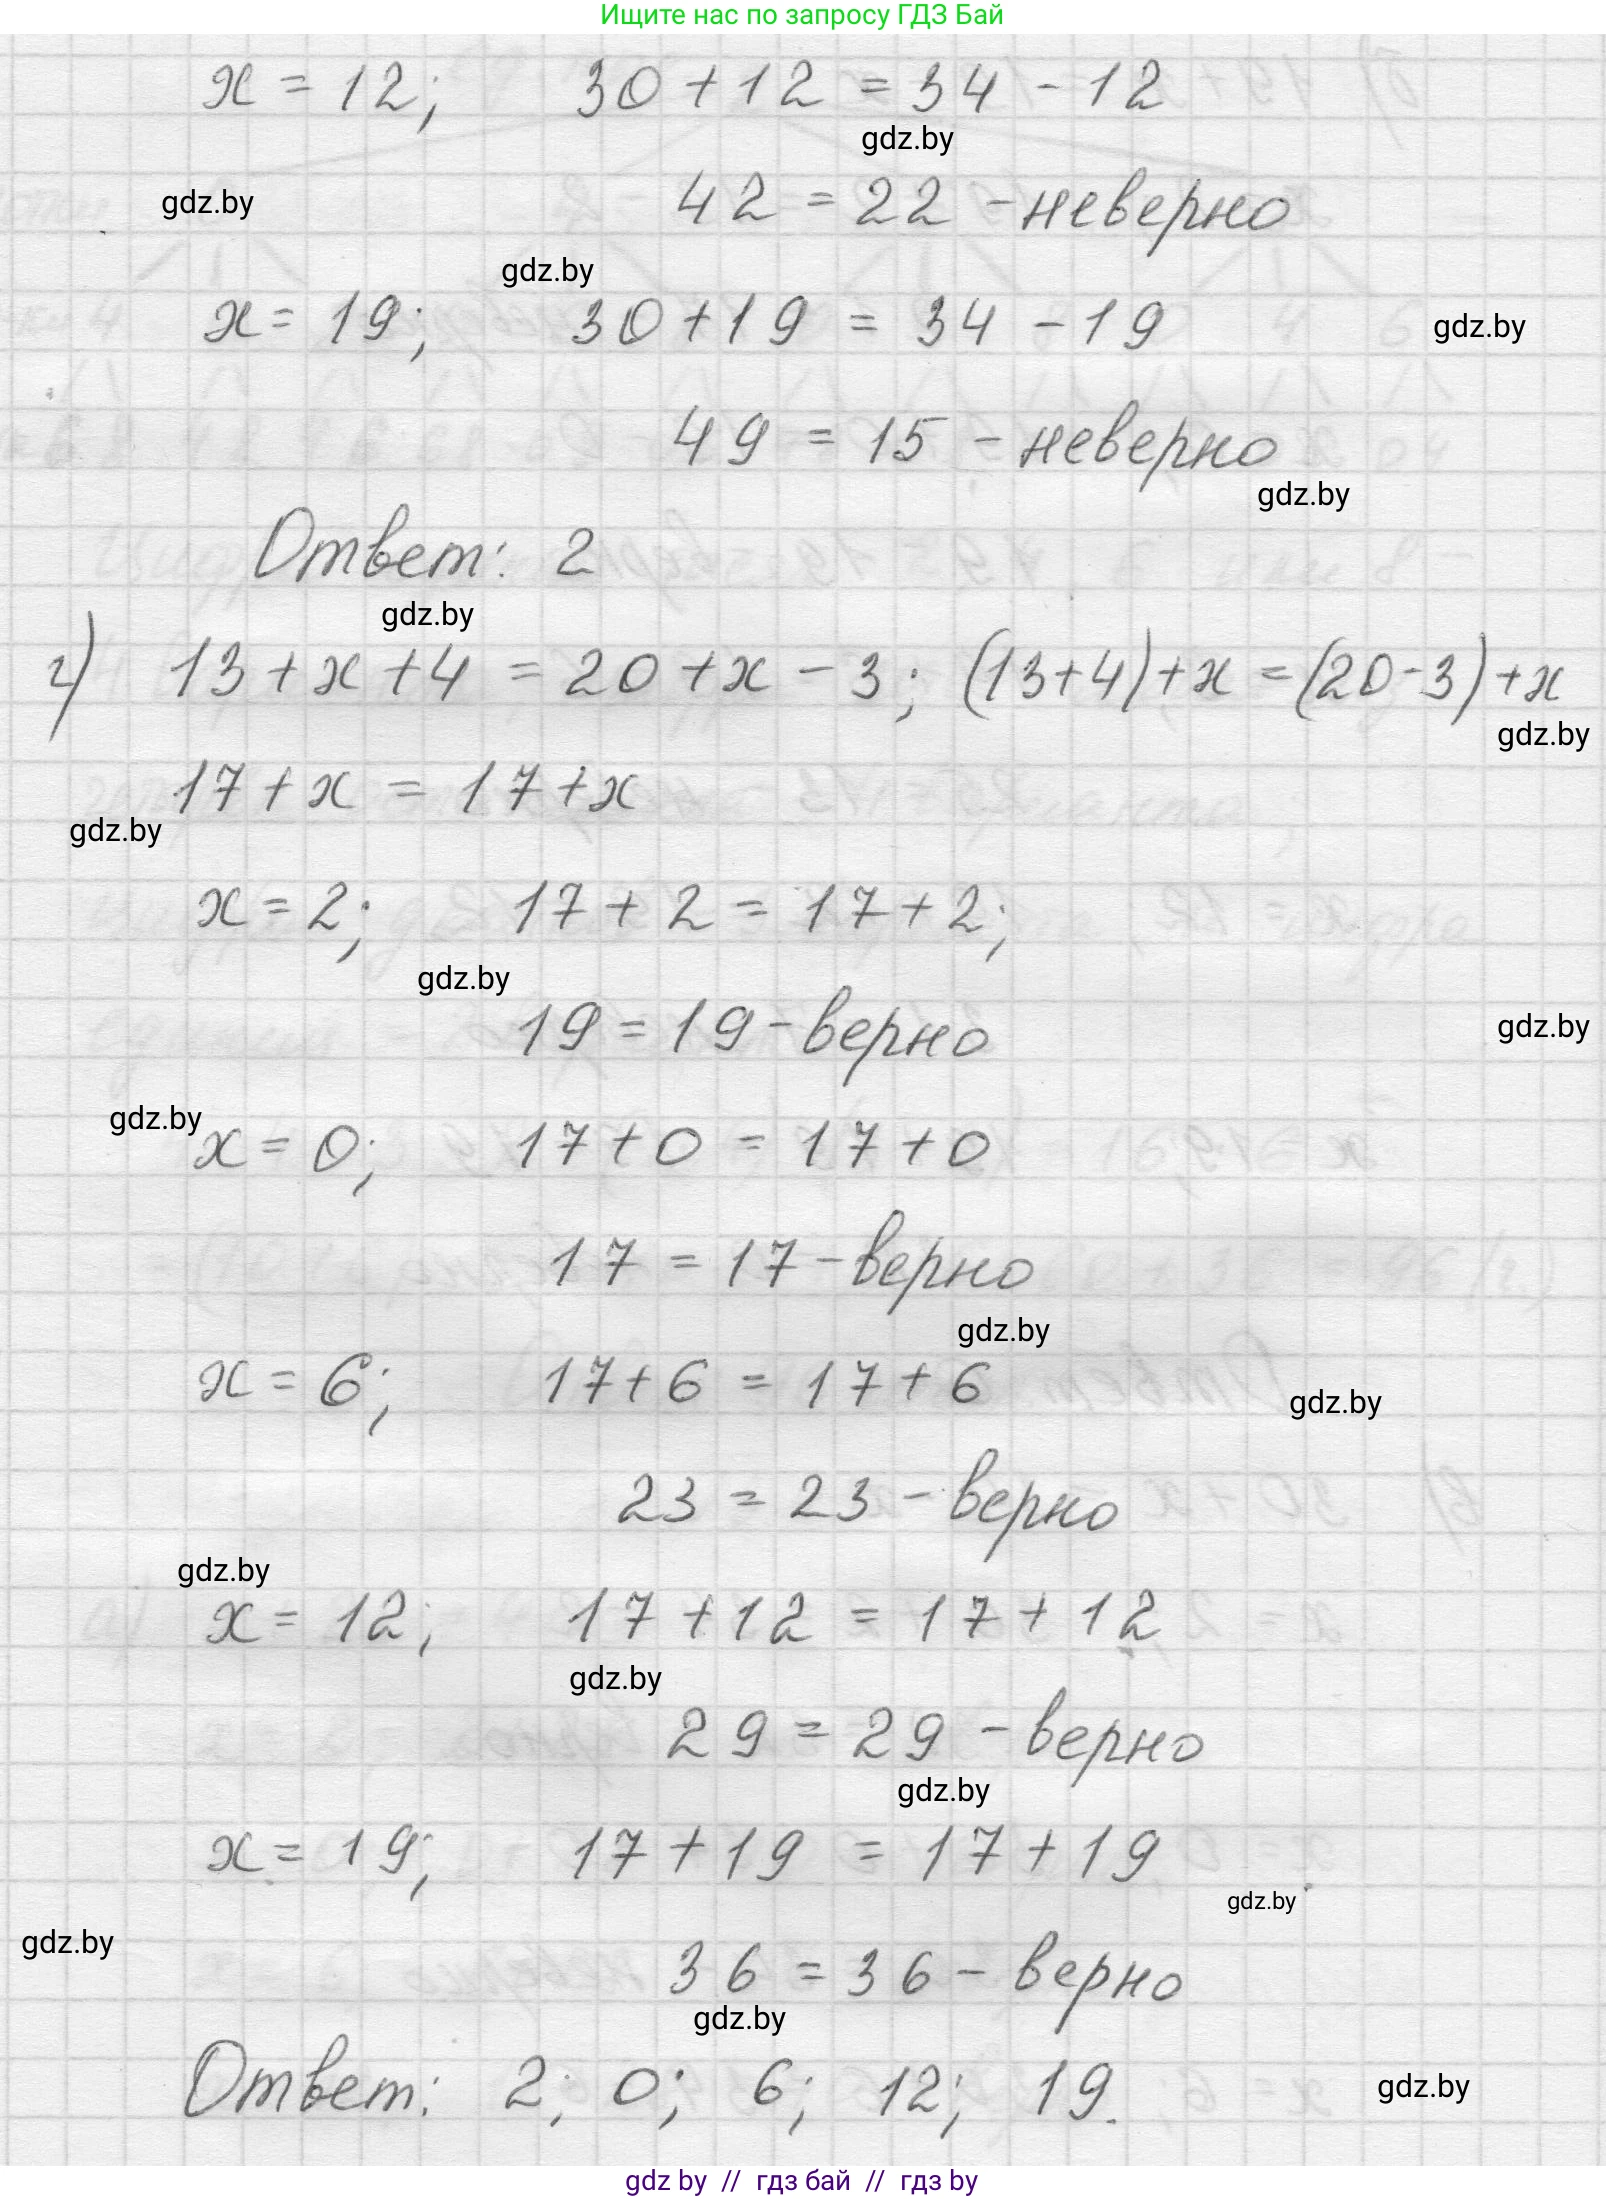 Ищите нас по запросу ГДЗ Бай
x = 12; 30 + 12 = 34 - 12
gdz.by
gdz.by 42 = 22 - неверно
gdz.by
x = 19; 30 + 19 = 34 - 19 gdz.by
49 = 15 - неверно
gdz.by
Ответ: 2
gdz.by
г) 13 + x + 4 = 20 + x - 3; (13+4) + x = (20-3) + x
gdz.by
17 + x = 17 + x
gdz.by
x = 2; 17 + 2 = 17 + 2;
gdz.by
19 = 19 - верно gdz.by
gdz.by
x = 0; 17 + 0 = 17 + 0
17 = 17 - верно
gdz.by
x = 6; 17 + 6 = 17 + 6 gdz.by
23 = 23 - верно
gdz.by
x = 12; 17 + 12 = 17 + 12
gdz.by
29 = 29 - верно
gdz.by
x = 19; 17 + 19 = 17 + 19
gdz.by
gdz.by
36 = 36 - верно
gdz.by
Ответ: 2; 0; 6; 12; 19. gdz.by
gdz by // гдз бай // гдз by